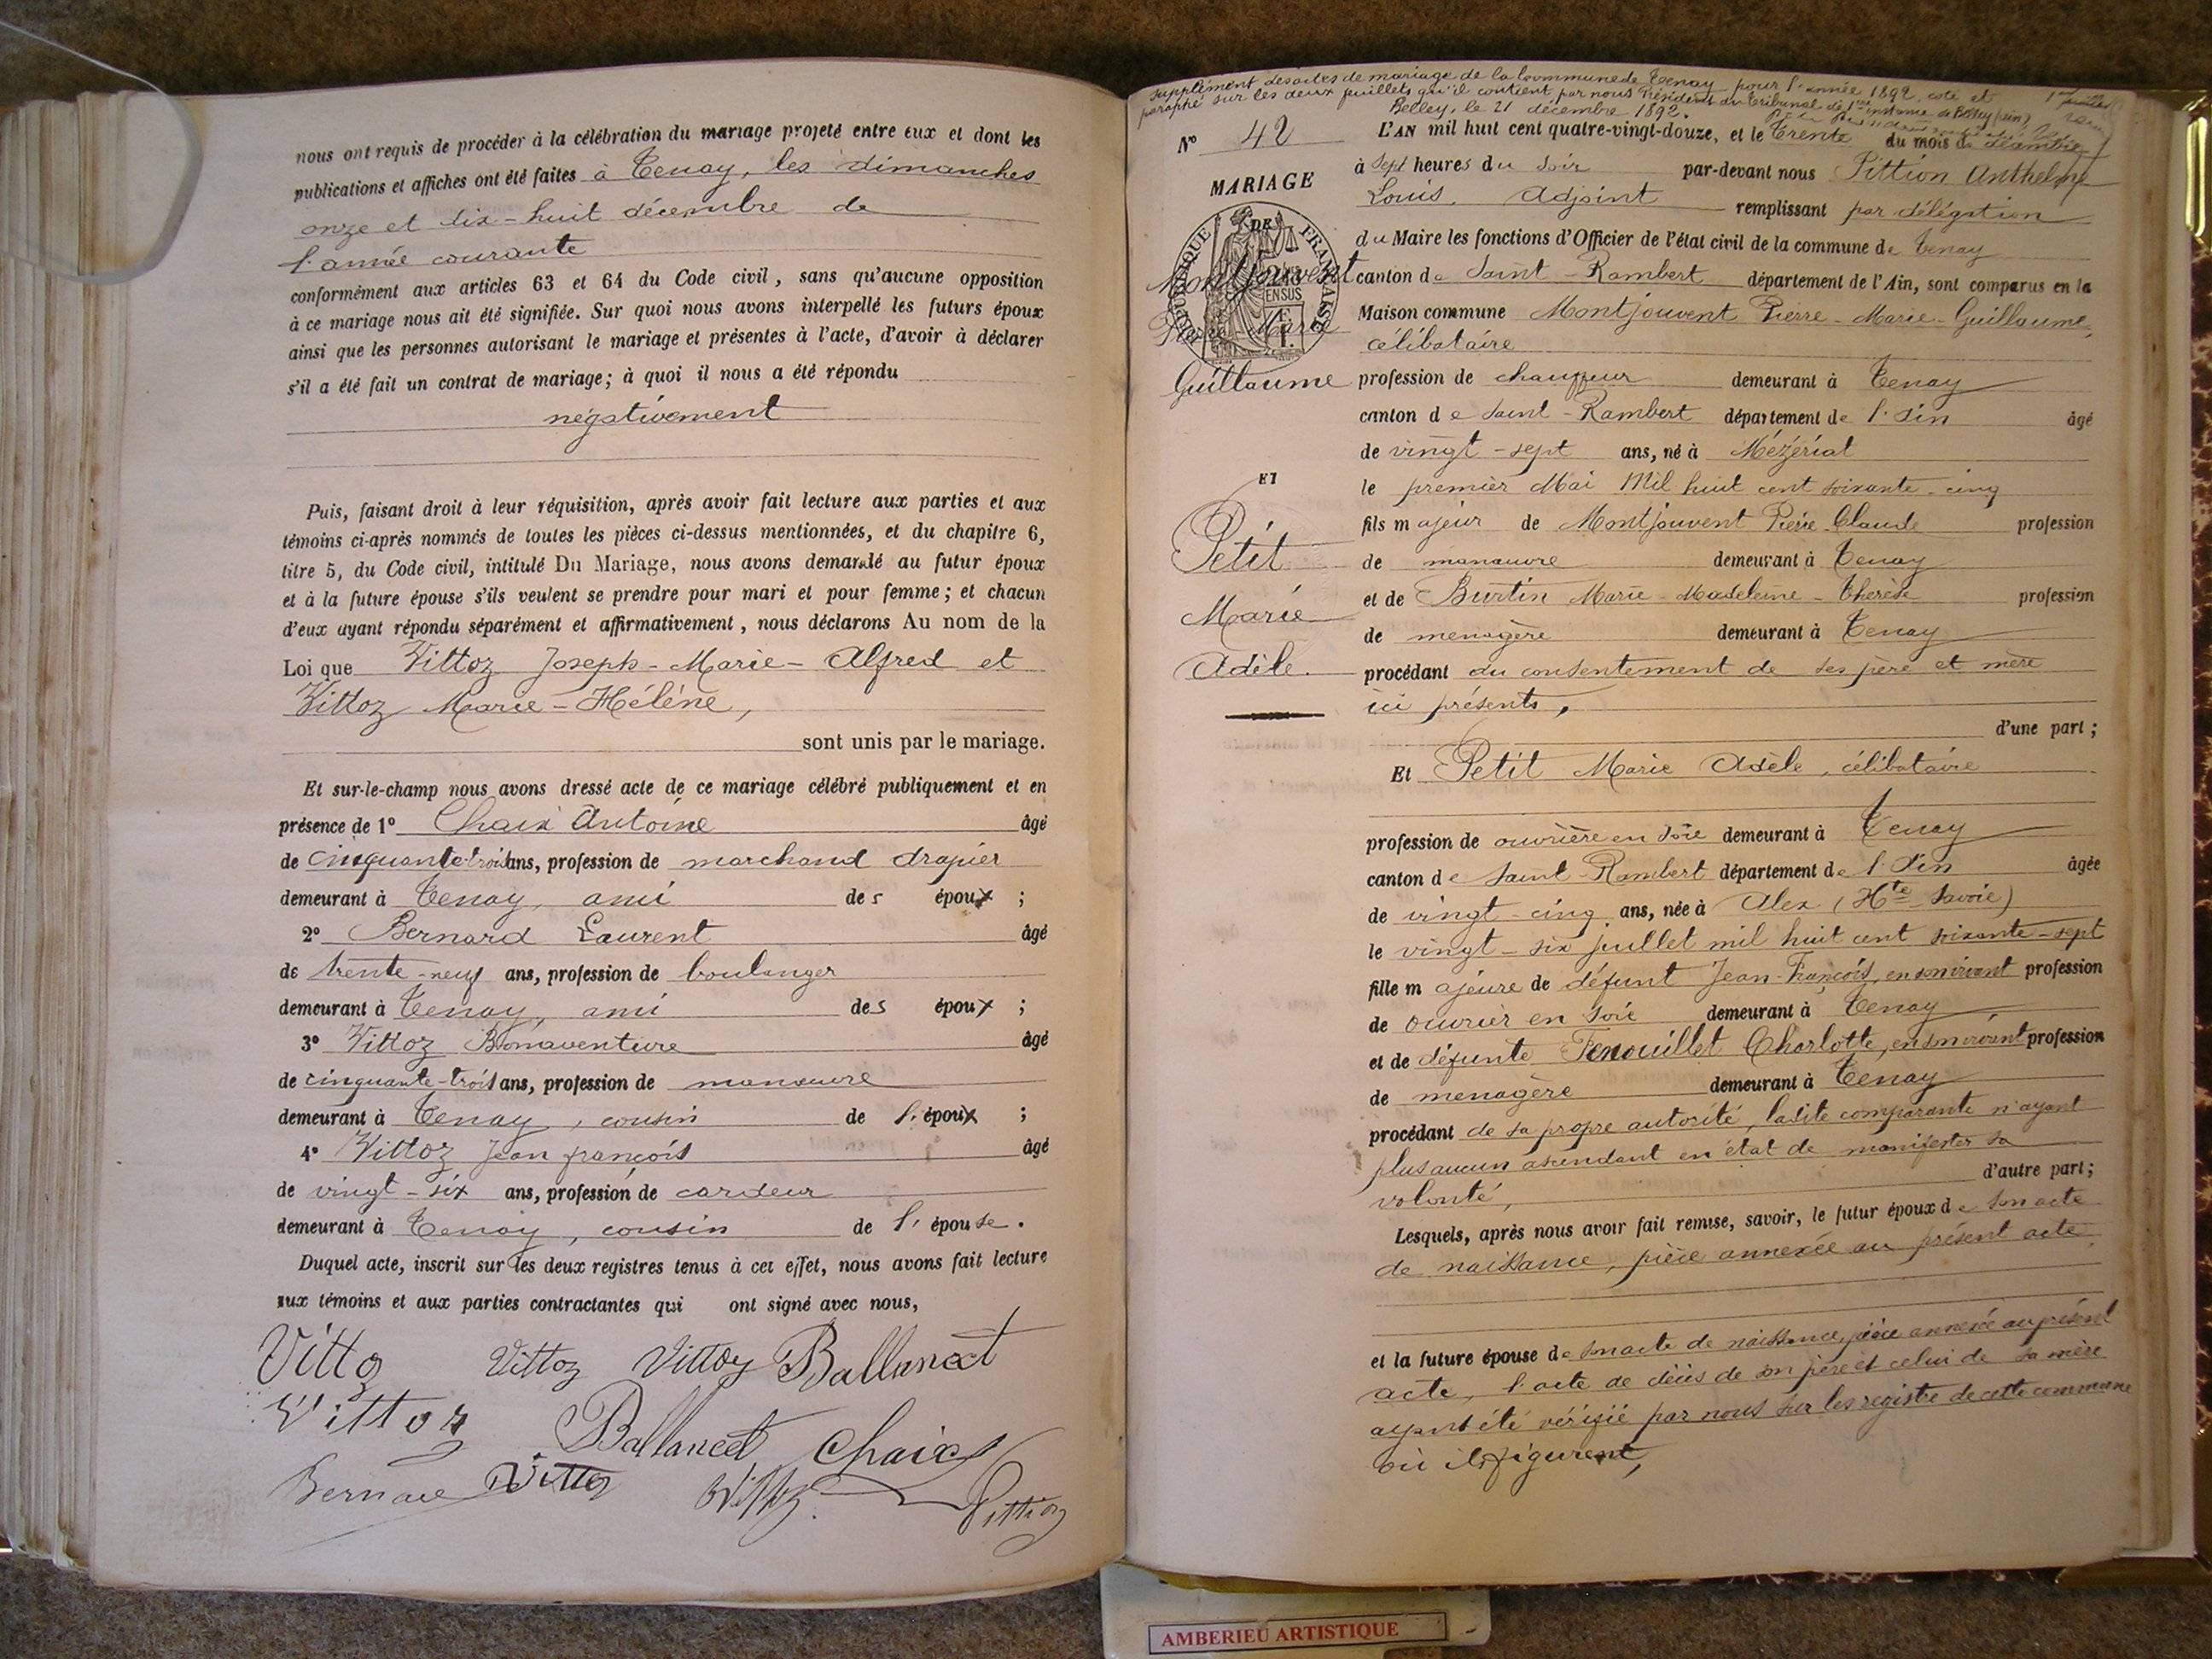 nous ont requis de procéder à la célébration du mariage projeté entre eux et dont les
publications et affiches ont été faites à Tenay, les dimanches
onze et dix-huit décembre de
l'année courante
conformément aux articles 63 et 64 du Code civil, sans qu'aucune opposition
à ce mariage nous ait été signifiée. Sur quoi nous avons interpellé les futurs époux
ainsi que les personnes autorisant le mariage et présentes à l'acte, d'avoir à déclarer
s'il a été fait un contrat de mariage; à quoi il nous a été répondu
négativement
Puis, faisant droit à leur réquisition, après avoir fait lecture aux parties et aux
témoins ci-après nommés de toutes les pièces ci-dessus mentionnées, et du chapitre 6,
titre 5, du Code civil, intitulé Du Mariage, nous avons demandé au futur époux
et à la future épouse s'ils veulent se prendre pour mari et pour femme; et chacun
d'eux ayant répondu séparément et affirmativement, nous déclarons Au nom de la
Loi que Vittoz Joseph-Marie-Alfred et
Vittoz Marie-Hélène,
sont unis par le mariage.
Et sur-le-champ nous avons dressé acte de ce mariage célébré publiquement et en
présence de 1° Chaix Antoine âgé
de cinquante-trois ans, profession de marchand drapier
demeurant à Tenay, ami des époux ;
2° Bernard Laurent âgé
de trente-neuf ans, profession de boulanger
demeurant à Tenay, ami des époux ;
3° Vittoz Bonaventure âgé
de cinquante-trois ans, profession de manœuvre
demeurant à Tenay, cousin de l'époux ;
4° Vittoz Jean françois âgé
de vingt-six ans, profession de cardeur
demeurant à Tenay, cousin de l'épouse.
Duquel acte, inscrit sur les deux registres tenus à cet effet, nous avons fait lecture
aux témoins et aux parties contractantes qui ont signé avec nous,
Vittoz Vittoz Vittoz Ballancet
Vittoz Ballancet Chaix
Bernard Vittoz Vittoz Pittion
Supplément des actes de mariage de la Commune de Tenay pour l'année 1892, coté et
paraphé sur les deux feuillets qu'il contient par nous Président du tribunal de 1ère instance de Belley (Ain)
Belley, le 21 décembre 1892.
N° 42
MARIAGE
RÉPUBLIQUE FRANÇAISE
Montjouvent
Pierre Marie
Guillaume
ET
Petit
Marie
Adèle.
L'AN mil huit cent quatre-vingt-douze, et le Trente du mois de décembre
à sept heures du soir par-devant nous Pittion Anthelme
Louis, Adjoint remplissant par délégation
du Maire les fonctions d'Officier de l'état civil de la commune de Tenay
canton de Saint-Rambert département de l'Ain, sont comparus en la
Maison commune Montjouvent Pierre-Marie-Guillaume,
célibataire
profession de chauffeur demeurant à Tenay
canton de Saint-Rambert département de l'Ain âgé
de vingt-sept ans, né à Mézériat
le premier Mai Mil huit cent soixante-cinq
fils majeur de Montjouvent Pierre-Claude profession
de manœuvre demeurant à Tenay
et de Burtin Marie-Madeleine-Thérèse profession
de menagère demeurant à Tenay
procédant du consentement de ses père et mère
ici présents,
d'une part;
Et Petit Marie Adèle, célibataire
profession de ouvrière en soie demeurant à Tenay
canton de Saint-Rambert département de l'Ain âgée
de vingt-cinq ans, née à Alex (Hte Savoie)
le vingt-six juillet mil huit cent soixante-sept
fille majeure de défunt Jean-François, en son vivant profession
de ouvrier en soie demeurant à Tenay
et de défunte Fenouillet Charlotte, en son vivant profession
de menagère demeurant à Tenay
procédant de sa propre autorité, ladite comparante n'ayant
plus aucun ascendant en état de manifester sa
volonté, d'autre part;
Lesquels, après nous avoir fait remise, savoir, le futur époux de son acte
de naissance, pièce annexée au présent acte
et la future épouse de son acte de naissance, pièce annexée au présent
acte, l'acte de décès de son père et celui de sa mère
ayant été vérifié par nous sur les registre de cette commune
où ils figurent,
AMBERIEU ARTISTIQUE